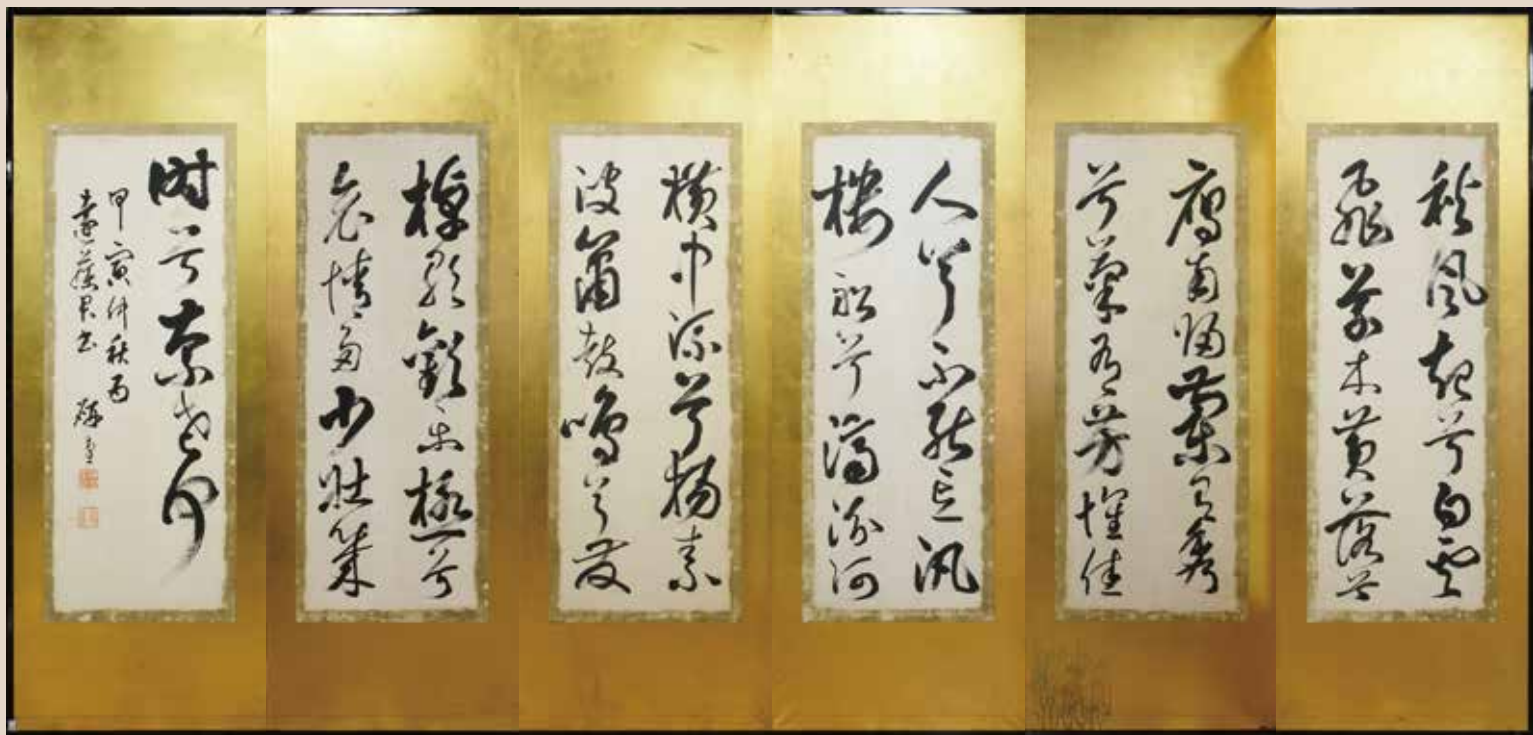 秋風起兮白雲
飛草木黄落兮
鴈南歸蘭有秀
兮菊有芳懷佳
人兮不能忘汎
樓船兮濟汾河
橫中流兮揚素
波簫鼓鳴兮發
棹歌歡樂極兮
哀情多少壯幾
時兮奈老何
甲寅仲秋為
遠藤君書